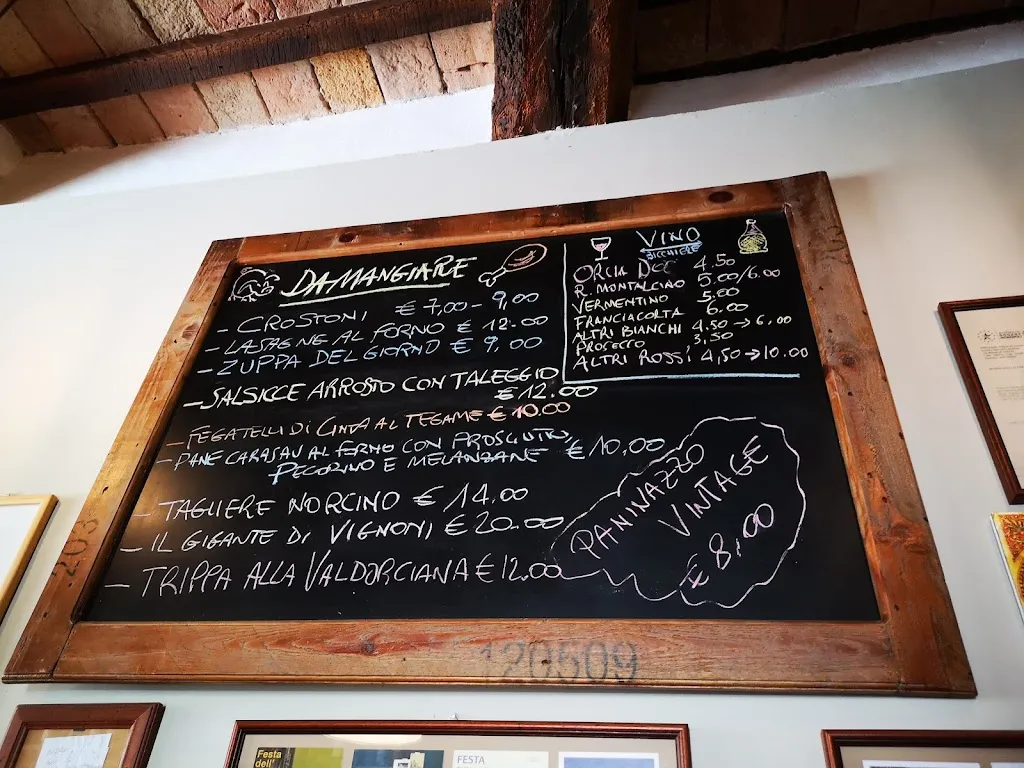 DA MANGIARE
- CROSTONI € 7,00 - 9,00
- LASAGNE AL FORNO € 12.00
- ZUPPA DEL GIORNO € 9,00
- SALSICCE ARROSTO CON TALEGGIO
€ 12.00
- FEGATELLI DI CINTA AL TEGAME € 10.00
- PANE CARASAU AL FORNO CON PROSCIUTTO,
PECORINO E MELANZANE € 10,00
- TAGLIERE NORCINO € 14.00
- IL GIGANTE DI VIGNONI € 20.00
- TRIPPA ALLA VALDORCIANA € 12.00
VINO
BICCHIERE
ORCIA DOC 4.50
R. MONTALCINO 5.00/6.00
VERMENTINO 5.00
FRANCIACORTA 6.00
ALTRI BIANCHI 4.50 → 6,00
PROSECCO 3,50
ALTRI ROSSI 4,50 → 10.00
PANINAZZO
VINTAGE
€ 8,00
203
120509
Festa
dell'
FESTA